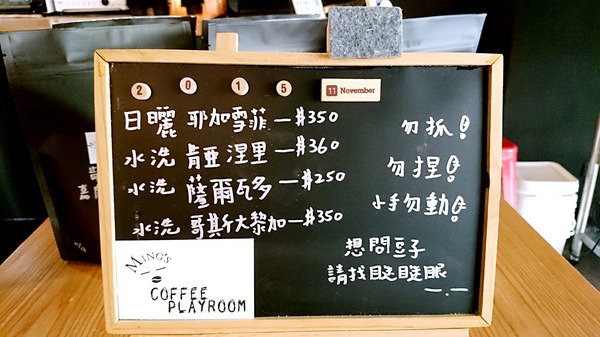 2 0 1 5 11 November
日曬 耶加雪菲—$350
水洗 肯亞 涅里—$360
水洗 薩爾瓦多—$250
水洗 哥斯大黎加—$350
勿抓!
勿捏!
小手勿動!
想問豆子
請找瞇瞇眼
MING'S
COFFEE
PLAYROOM